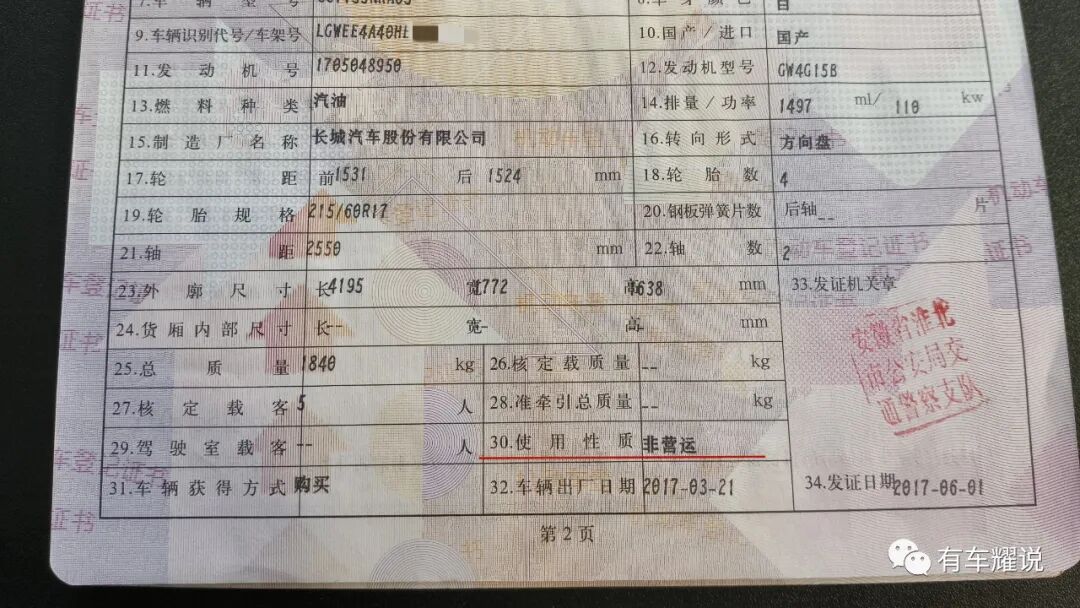 7.车辆型号
9.车辆识别代号/车架号 LGWEE4A40H 10.国产/进口 国产
11.发动机号 1705048950 12.发动机型号 GW4G15B
13.燃料种类 汽油 14.排量/功率 1497 ml/ 110 kw
15.制造厂名称 长城汽车股份有限公司 16.转向形式 方向盘
17.轮距 前1531 后1524 mm 18.轮胎数 4
19.轮胎规格 215/60R17 20.钢板弹簧片数 后轴-- 片
21.轴距 2550 mm 22.轴数 2
23.外廓尺寸 长4195 宽1772 高1638 mm 33.发证机关章
24.货厢内部尺寸 长-- 宽- 高 mm
安徽省淮北
市公安局交
通警察支队
25.总质量 1840 kg 26.核定载质量 -- kg
27.核定载客 5 人 28.准牵引总质量 -- kg
29.驾驶室载客 -- 人 30.使用性质 非营运
31.车辆获得方式 购买 32.车辆出厂日期 2017-03-21 34.发证日期 2017-06-01
第2页
有车耀说